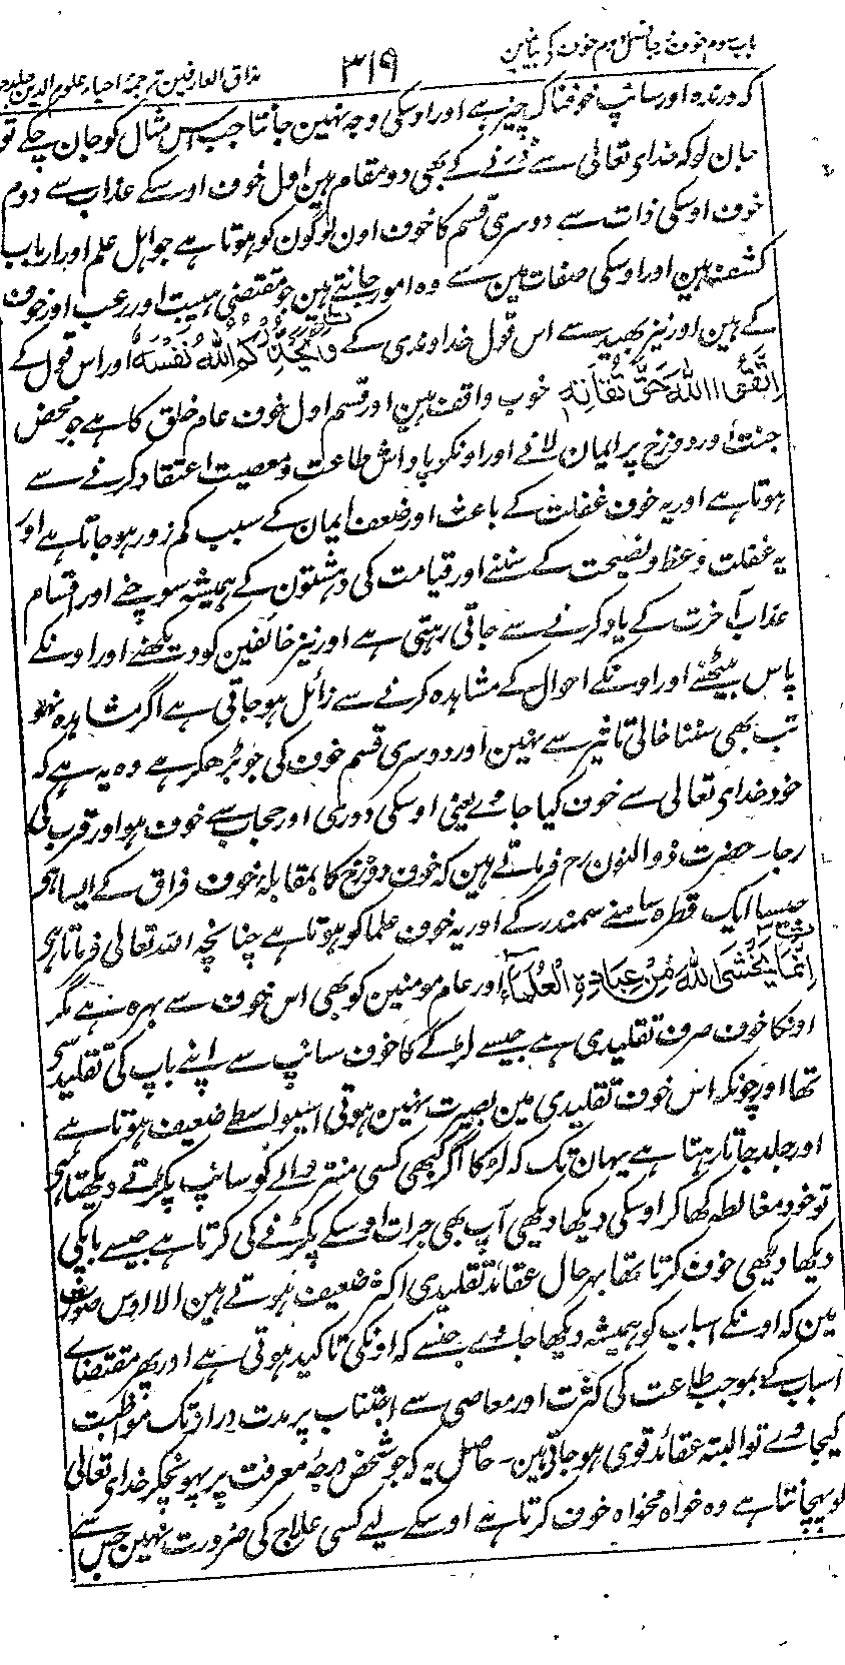 باب سوم خوف جانفصل دوم خوف کے بیانمین
۳۱۹
مذاق العارفین ترجمۂ احیاء علوم الدین جلد
کہ درندہ اور سانپ خوفناک چیز ہے اور اوسکی وجہ نہین جانتا جب اس مثال کو جان چکے تو
جان لو کہ خدای تعالی سے ڈرنے کے بھی دو مقام ہین اول خوف اوسکے عذاب سے دوم
خوف اوسکی ذات سے دوسری قسم کا خوف اون لوگون کو ہوتا ہے جو اہل علم اور ارباب
کشف ہین اور اوسکی صفات مین سے وہ امور جانتے ہین جو مقتضی ہیبت اور رعب اور خوف
کے ہین اور نیز بھید سے اس قول خداوندی کے وَیُحَذِّرُکُمُ اللّٰہُ نَفْسَہٗ اور اس قول کے
اِتَّقُوا اللّٰہَ حَقَّ تُقَاتِہٖ خوب واقف ہین اور قسم اول خوف عام خلق کا ہے جو محض
جنت اور دوزخ پر ایمان لانے اور اونکو پاداش طاعت و معصیت اعتقاد کرنے سے
ہوتا ہے اور یہ خوف غفلت کے باعث اور ضعف ایمان کے سبب کم زور ہو جاتا ہے اور
یہ غفلت وعظ و نصیحت کے سننے اور قیامت کی دہشتون کے ہمیشہ سوچنے اور اقسام
عذاب آخرت کے یاد کرنے سے جاتی رہتی ہے اور نیز خائفین کو دیکھنے اور اونکے
پاس بیٹھنے اور اونکے احوال کے مشاہدہ کرنے سے زائل ہو جاتی ہے اگر مشاہدہ نہو
تب بھی سننا خالی تاثیر سے نہین اور دوسری قسم خوف کی جو بڑھکر ہے وہ یہ ہے کہ
خود خدای تعالی سے خوف کیا جاوے یعنی اوسکی دوری اور حجاب سے خوف ہو اور قرب کی
رجا۔ حضرت ذوالنون رح فرماتے ہین کہ خوف دوزخ کا بمقابلہ خوف فراق کے ایسا ہے
جیسا ایک قطرہ سامنے سمندر کے اور یہ خوف علما کو ہوتا ہے چنانچہ اللہ تعالی فرماتا ہے
اِنَّمَا یَخْشَی اللّٰہَ مِنْ عِبَادِہِ الْعُلَمَاءُ اور عام مومنین کو بھی اس خوف سے بہرہ ہے مگر
اونکا خوف صرف تقلیدی ہے جیسے لڑکے کا خوف سانپ سے اپنے باپ کی تقلید سے
تھا اور چونکہ اس خوف تقلیدی مین بصیرت نہین ہوتی اسیواسطے ضعیف ہوتا ہے
اور جلد جاتا رہتا ہے یہان تک کہ لڑکا اگر کبھی کسی منتر والے کو سانپ پکڑتے دیکھتا ہے
تو خود مغالطہ کھا کر اوسکی دیکھا دیکھی آپ بھی جرات اوسکے پکڑنے کی کرتا ہے جیسے باپکی
دیکھا دیکھی خوف کرتا تھا بہر حال عقائد تقلیدی اکثر ضعیف ہوتے ہین الا اوس صورت
مین کہ اونکے اسباب کو ہمیشہ دیکھا جاوے جنسے کہ اونکی تاکید ہوتی ہے اور پھر مقتضاے
اسباب کے بموجب طاعت کی کثرت اور معاصی سے اجتناب پر مدت دراز تک مواظبت
کیجاوے تو البتہ عقائد قوی ہو جاتے ہین۔ حاصل یہ کہ جو شخص درجۂ معرفت پر پہونچکر خدای تعالی
کو پہچانتا ہے وہ خواہ مخواہ خوف کرتا ہے اوسکے لیے کسی علاج کی ضرورت نہین جس سے